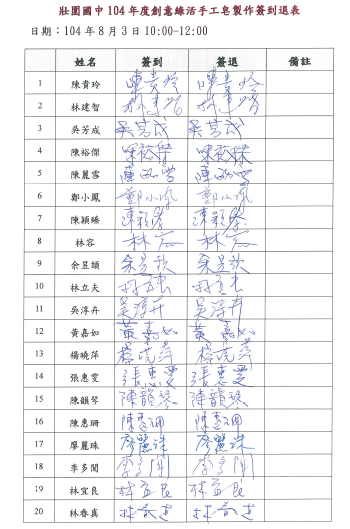 壯圍國中 104 年度創意綠活手工皂製作簽到退表
日期：104 年 8 月 3 日 10:00-12:00
姓名 簽到 簽退 備註
1 陳貴玲 陳貴玲 陳貴玲
2 林建智 林建智 林建智
3 吳芳成 吳芳成 吳芳成
4 陳裕傑 陳裕傑 陳裕傑
5 陳麗雪 陳麗雪 陳麗雪
6 鄭小鳳 鄭小鳳 鄭小鳳
7 陳穎臻 陳穎臻 陳穎臻
8 林容 林容 林容
9 余昱頴 余昱 余昱
10 林立夫 林立夫 林立夫
11 吳淳卉 吳淳卉 吳淳卉
12 黃嘉如 黃嘉如 黃嘉如
13 楊曉萍 楊曉萍 楊曉萍
14 張惠雯 張惠雯 張惠雯
15 陳韻琴 陳韻琴 陳韻琴
16 陳惠珊 陳惠珊 陳惠珊
17 廖麗珠 廖麗珠 廖麗珠
18 李多聞 李多聞 李多聞
19 林宜良 林宜良 林宜良
20 林春真 林春真 林春真